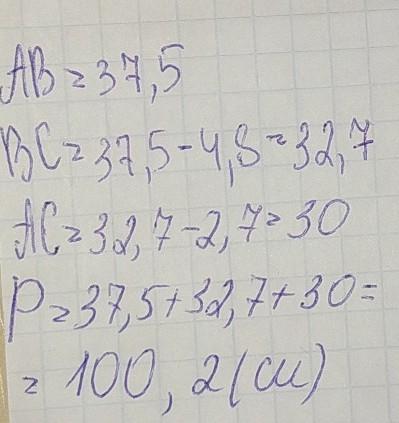 AB = 37,5
BC = 37,5 - 4,8 = 32,7
AC = 32,7 - 2,7 = 30
P = 37,5 + 32,7 + 30 =
= 100,2 (см)